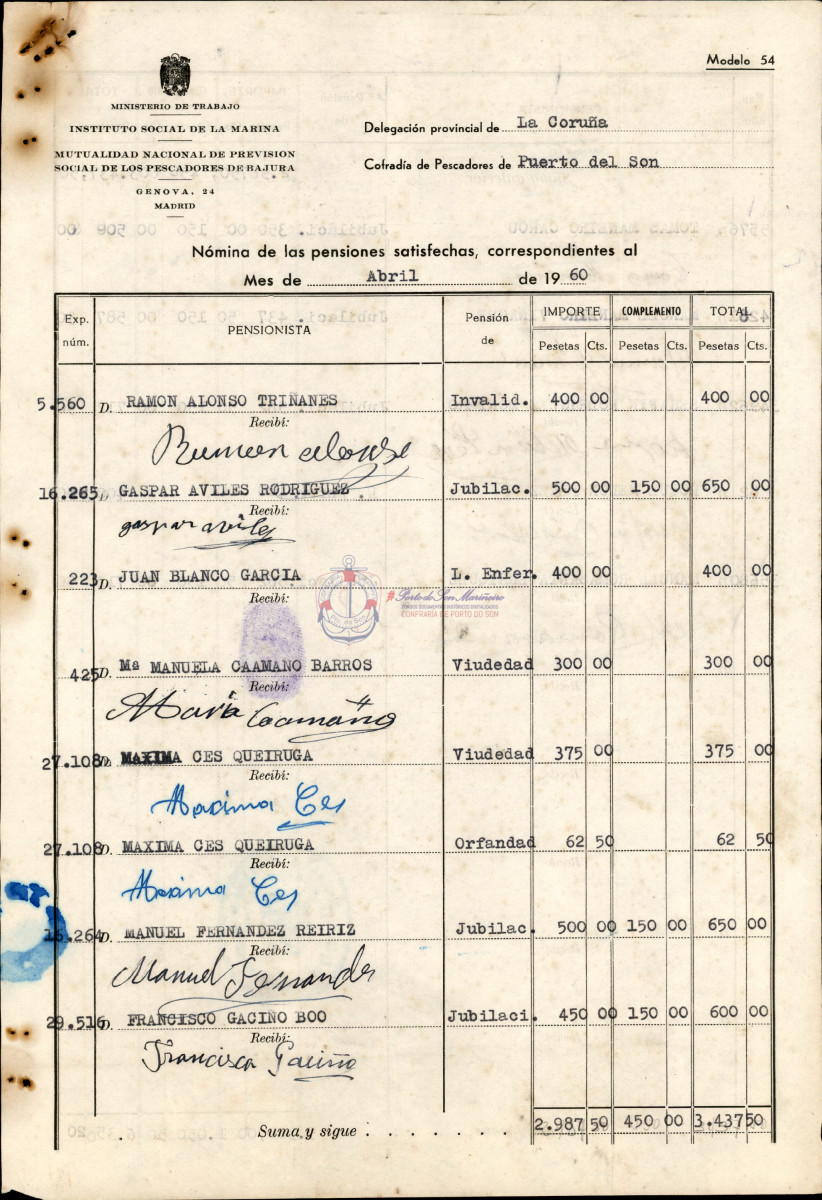 Modelo 54
MINISTERIO DE TRABAJO
INSTITUTO SOCIAL DE LA MARINA
MUTUALIDAD NACIONAL DE PREVISION
SOCIAL DE LOS PESCADORES DE BAJURA
GENOVA, 24
MADRID
Delegación provincial de La Coruña
Cofradía de Pescadores de Puerto del Son
Nómina de las pensiones satisfechas, correspondientes al
Mes de Abril de 19 60
Exp. núm. PENSIONISTA Pensión de IMPORTE COMPLEMENTO TOTAL
Pesetas Cts. Pesetas Cts. Pesetas Cts.
5.560 D. RAMON ALONSO TRIÑANES Invalid. 400 00 400 00
Recibí:
Ramon alonso
16.265 D. GASPAR AVILES RODRIGUEZ Jubilac. 500 00 150 00 650 00
Recibí:
gaspar aviles
223 D. JUAN BLANCO GARCIA L. Enfer. 400 00 400 00
Recibí:
#Porto do Son Mariñeiro
CONFRARÍA DE PORTO DO SON
425 D. Mª MANUELA CAAMAÑO BARROS Viudedad 300 00 300 00
Recibí:
María Caamaño
27.108 D. MAXIMA CES QUEIRUGA Viudedad 375 00 375 00
Recibí:
Maxima Ces
27.108 D. MAXIMA CES QUEIRUGA Orfandad 62 50 62 50
Recibí:
Maxima Ces
16.264 D. MANUEL FERNANDEZ REIRIZ Jubilac. 500 00 150 00 650 00
Recibí:
Manuel Fernandez
29.516 D. FRANCISCO GACIÑO BOO Jubilaci. 450 00 150 00 600 00
Recibí:
Francisco Gaciño
Suma y sigue . . . . . . . 2.987 50 450 00 3.437 50